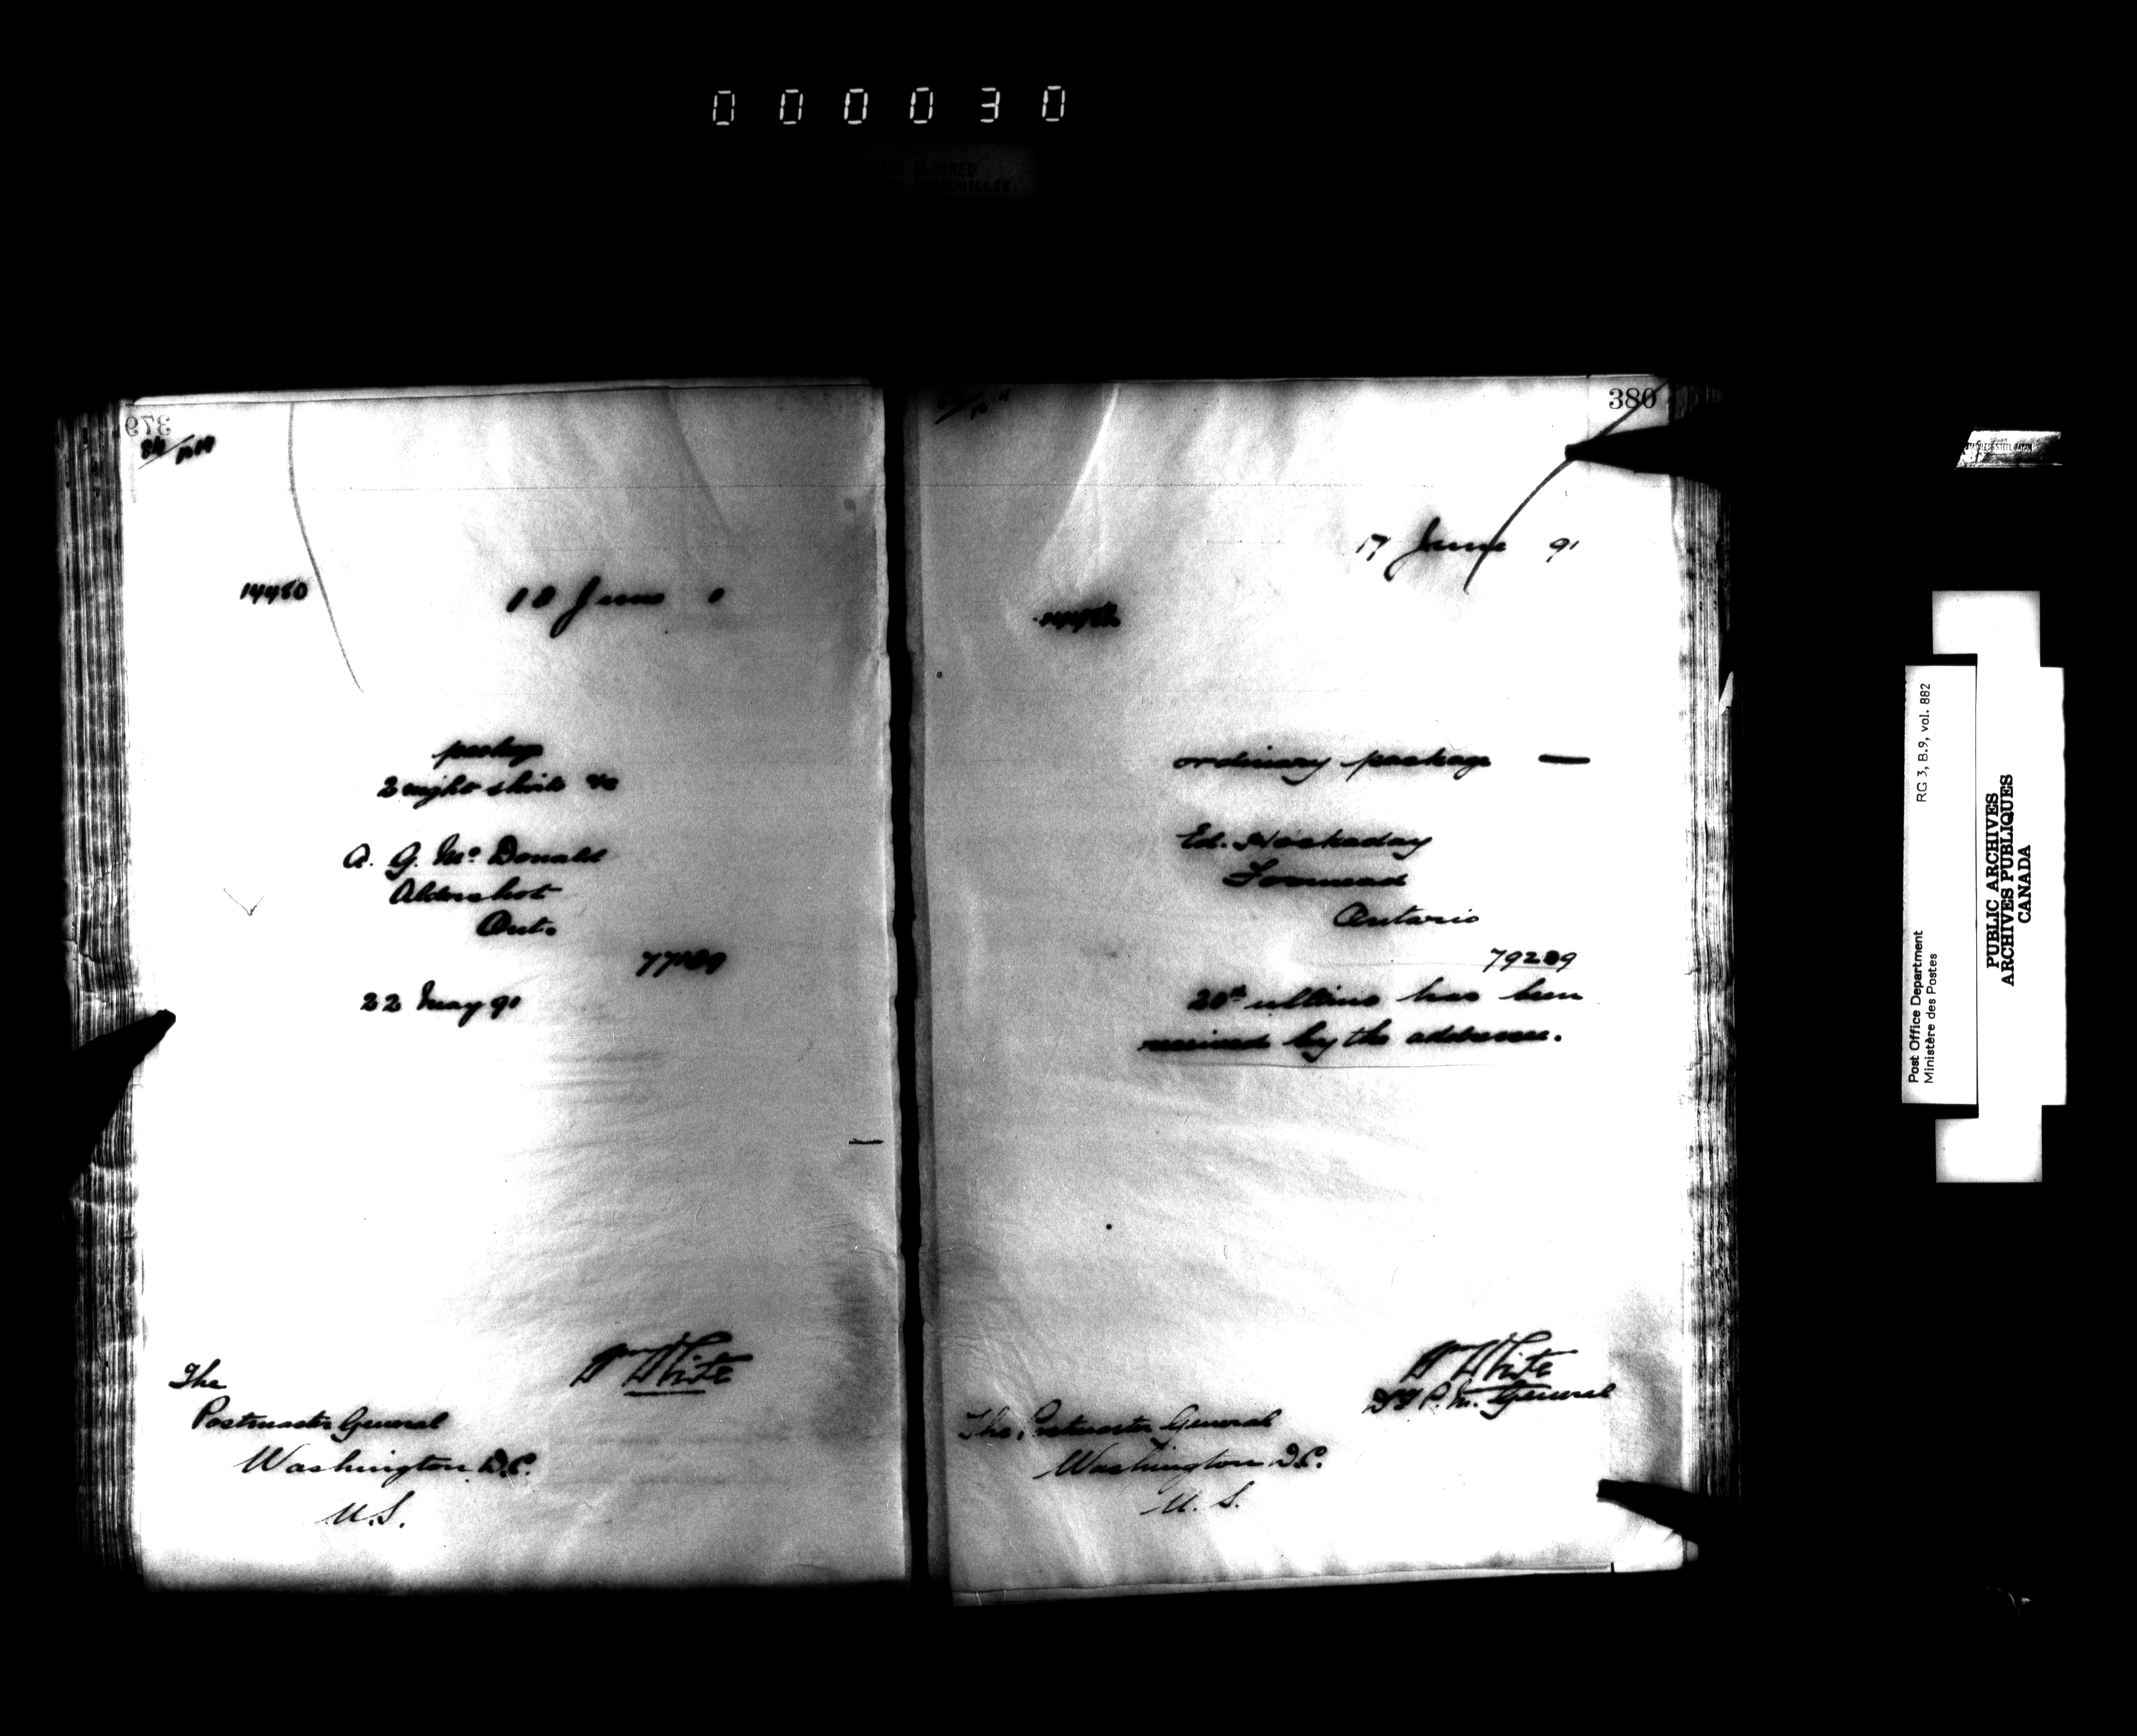 000030
BLURRED
379
14480
18 June
package
2 night shirts &c
A. G. Mc Donald
Aldershot
Ont.
22 May 91
Wm White
The
Postmaster General
Washington D.C.
U.S.
380
17 June 91
ordinary package —
Ed. Hockaday
Ontario
79289
20th ultimo has been
received by the addressee.
Wm White
Dy P. M. General
The Postmaster General
Washington D.C.
U. S.
Post Office Department RG 3, B.9, vol. 882
Ministère des Postes
PUBLIC ARCHIVES
ARCHIVES PUBLIQUES
CANADA